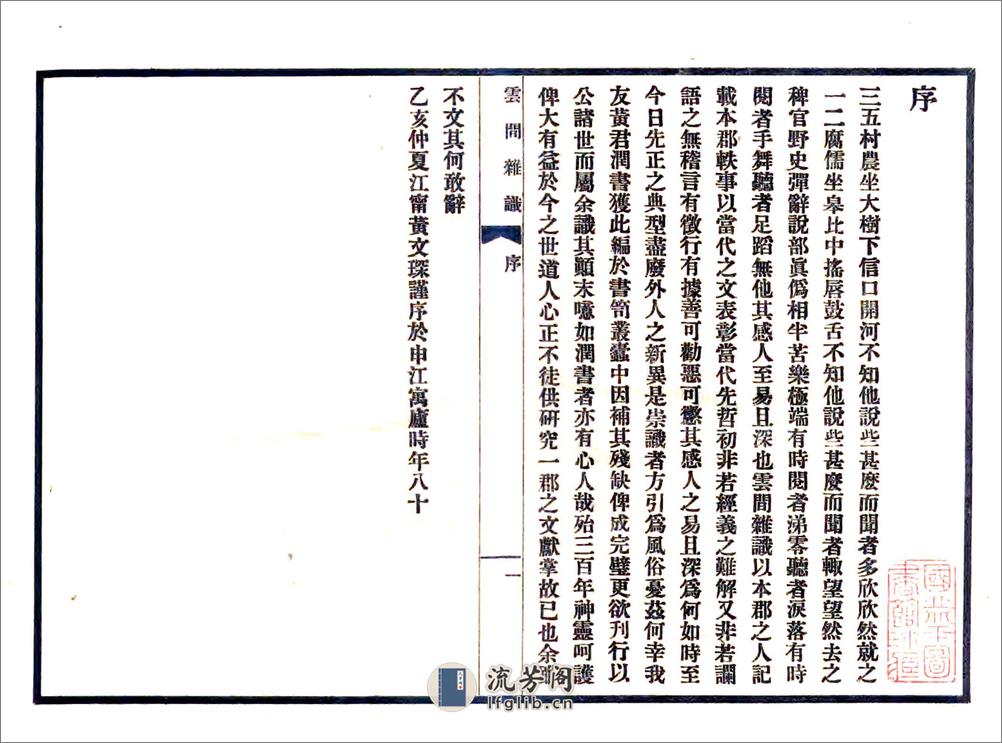 序
三五村農坐大樹下信口開河不知他說些甚麽而聞者多欣欣然就之
一二腐儒坐皋比中搖唇鼓舌不知他說些甚麽而聞者輙望望然去之
稗官野史彈辭說部眞僞相半苦樂極端有時閱者涕零聽者淚落有時
閱者手舞聽者足蹈無他其感人至易且深也雲間雜識以本郡之人記
載本郡軼事以當代之文表彰當代先哲初非若經義之難解又非若讕
語之無稽言有徵行有據善可勸惡可懲其感人之易且深爲何如時至
今日先正之典型盡廢外人之新異是崇識者方引爲風俗憂茲何幸我
友黃君潤書獲此編於書笥叢蠹中因補其殘缺俾成完璧更欲刊行以
公諸世而屬余識其顚末噫如潤書者亦有心人哉殆三百年神靈呵護
俾大有益於今之世道人心正不徒供研究一郡之文獻掌故已也余雖
雲間雜識
序
一
不文其何敢辭
乙亥仲夏江甯黃文琛謹序於申江寓廬時年八十
流芳阁
lfglib.cn